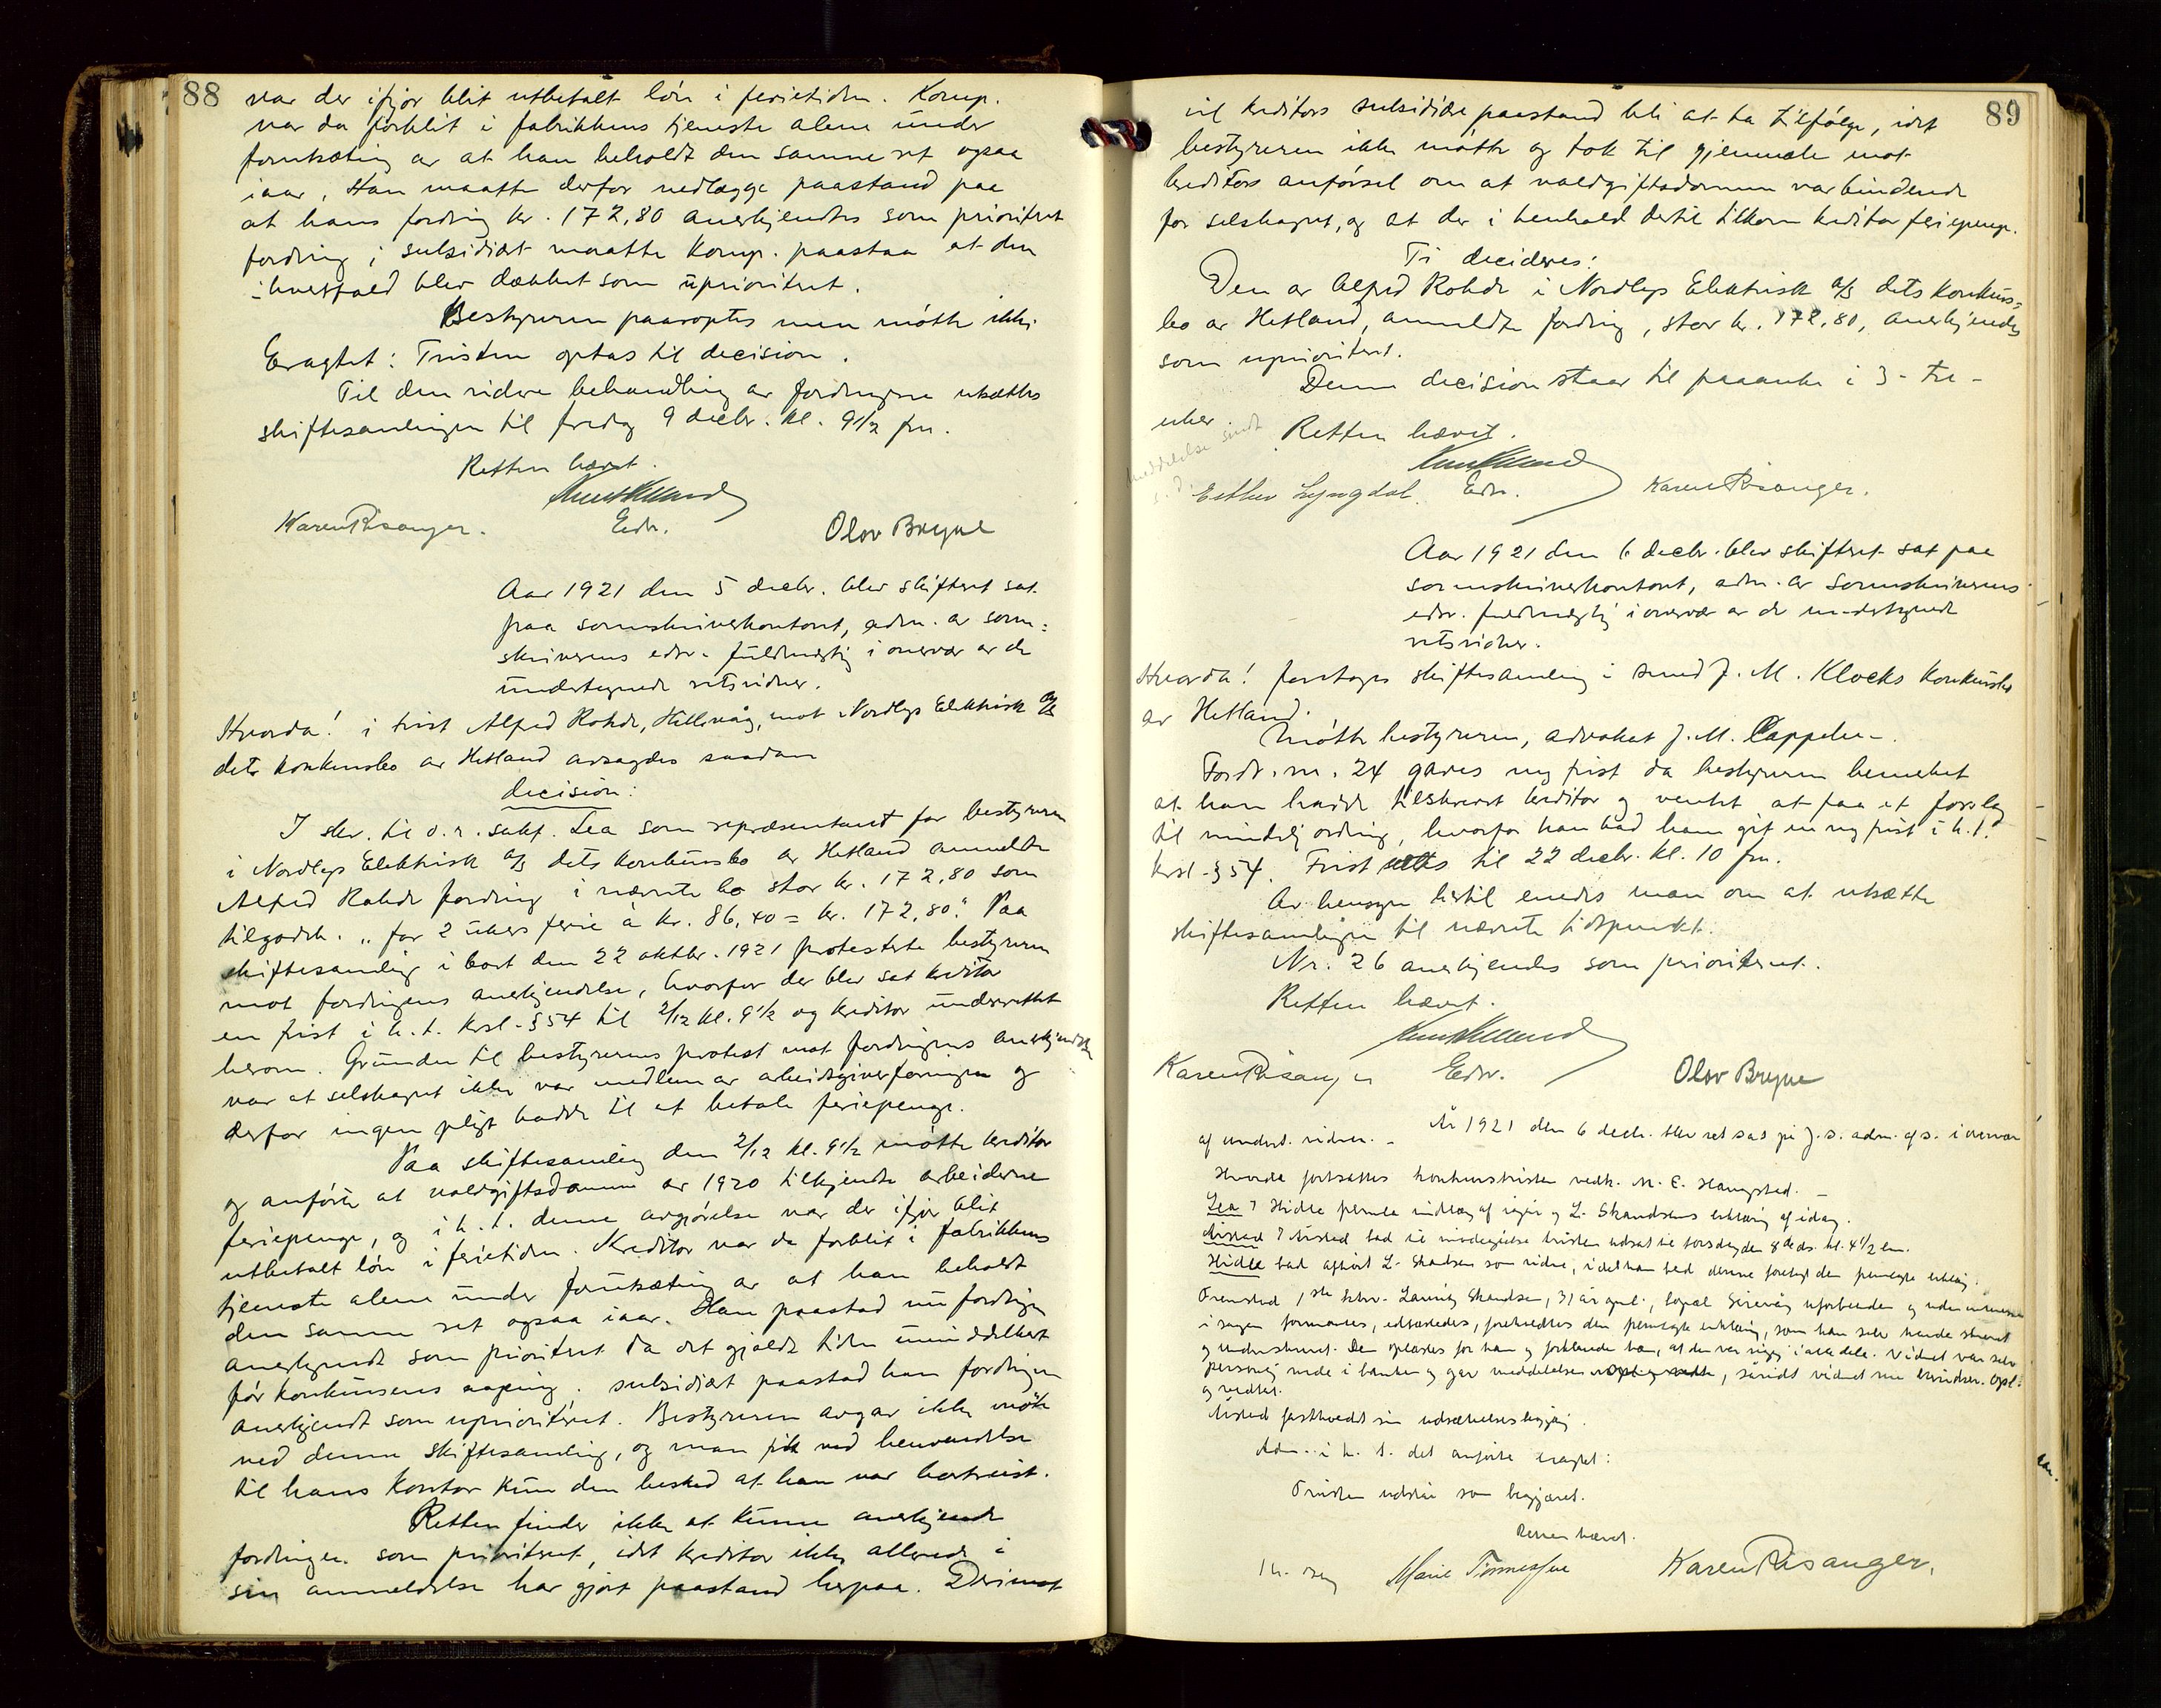 88
var der ifjor blit utbetalt løn i ferietiden. Komp.
var da forblit i fabrikkens tjeneste alene under
forutsætning av at han beholdt den samme ret ogsaa
iaar. Han maatte derfor nedlægge paastand paa
at hans fordring kr. 172,80 anerkjendtes som prioritert
fordring; subsidiært maatte komp. paastaa at den
ihvertfald blev dækket som uprioritert.
Bestyreren paaroptes men møtte ikke.
Eragtet: Tvisten optas til decision.
Til den videre behandling av fordringerne utsættes
skiftesamlingen til fredag 9 decbr. kl. 9 1/2 fm.
Retten hævet.
Edv.
Karen Risanger. Olov Bryne
Aar 1921 den 5 decbr. blev skifteret sat
paa sorenskriverkontoret, adm. av soren=
skriverens edsv. fuldmægtig i overvær av de
undertegnede retsvidner.
Hvorda! i tvist Alfred Rohde, Hillevåg, mot Nordlys Elektrisk A/S
dets konkursbo av Hetland avsagdes saadan
decision:
I skr. til o.r. sakf. Lea som repræsentant for bestyreren
i Nordlys Elektrisk A/S dets konkursbo av Hetland anmeldte
Alfred Rohde fordring i nævnte bo stor kr. 172,80 som
tilgodeh. "for 2 ukers ferie à kr. 86,40 = kr. 172,80." Paa
skiftesamling i boet den 22 oktbr. 1921 protesterte bestyreren
mot fordringens anerkjendelse, hvorfor der blev sat kreditor
en frist i h. t. krsl. § 54 til 2/12 kl. 9 1/2 og kreditor underrettet
herom. Grunden til bestyrerens protest mot fordringens anerkjendelse
var at selskapet ikke var medlem av arbeidsgiverforeningen og
derfor ingen pligt hadde til at betale feriepenge.
Paa skiftesamling den 2/12 kl. 9 1/2 møtte kreditor
og anførte at voldgiftsdommen av 1920 tilkjendte arbeiderne
feriepenge, og i h. t. denne avgjørelse var der ifjor blit
utbetalt løn i ferietiden. Kreditor var da forblit i fabrikkens
tjeneste alene under forutsætning av at han beholdt
den samme ret ogsaa iaar. Han paastod nu fordringen
anerkjendt som prioritert da det gjaldt tiden umiddelbart
før konkursens aapning. subsidiært paastod han fordringen
anerkjendt som uprioritert. Bestyreren avgav ikke møte
ved denne skiftesamling, og man fik ved henvendelse
til hans kontor kun den besked at han var bortreist.
Retten finder ikke at kunne anerkjende
fordringen som prioritert, idet kreditor ikke allerede i
sin anmeldelse har gjort paastand herpaa. Derimot
89
vil kreditors subsidiære paastand bli at ta tilfølge, idet
bestyreren ikke møtte og tok til gjenmæle mot
kreditors anførsel om at voldgiftsdommen var bindende
for selskapet, og at der i henhold dertil tilkom kreditor feriepenge.
Ti decideres:
Den av Alfred Rohde i Nordlys Elektrisk A/S dets konkurs=
bo av Hetland, anmeldte fordring, stor kr. 172,80, anerkjendes
som uprioritert.
Denne decision staar til paaanke i 3 - tre -
uker
meddelelse sendt
s. d.
Retten hævet.
Esther Lyngdal. Edv. Karen Risanger.
Aar 1921 den 6 decbr. blev skifteret sat paa
sorenskriverkontoret, adm. av sorenskriverens
edsv. fuldmægtig i overvær av de undertegnede
retsvidner.
Hvorda! foretoges skiftesamling i smed J. M. Klocks konkursbo
av Hetland.
Møtte bestyreren, advokat J. M. Cappelen.
Fordr. nr. 24 gaves ny frist da bestyreren bemerket
at han hadde tilskrevet kreditor og ventet at faa et forslag
til mindelig ordning, hvorfor han bad ham git en ny frist i h. t.
krsl. § 54. Frist sættes til 22 decbr. kl. 10 fm.
Av hensyn hertil enedes man om at utsætte
skiftesamlingen til nævnte tidspunkt.
Nr. 26 anerkjendes som prioritert.
Retten hævet.
Karen Risanger Edv. Olov Bryne
År 1921 den 6 decb. blev ret sat på s. s. adm. af s. i overvær
af undert. vidner. -
Hvorda fortsattes konkurstvisten vedk. M. E. Haugsted. -
Lea
Hidle bad afhørt L. Skandsen som vidne, i det han bad denne forelagt den
i sagen formanes, edfæstedes, foreholdtes den fremlagte erklæring, som han selv havde skrevet
og underskrevet. Den oplæstes for ham og forklarede han, at den var rigtig i alle dele. Vidnet var selv
personlig nede i banken og gav meddelelsen, såvidt vidnet nu erindrer. Opl.
og vedtat.
fastholdt sin udsættelsesbegjæring.
Adm. i h. t. det anførte eragtet:
Tvisten udstår som begjæret.
Retten hævet.
Marie Tønnessen Karen Risanger.